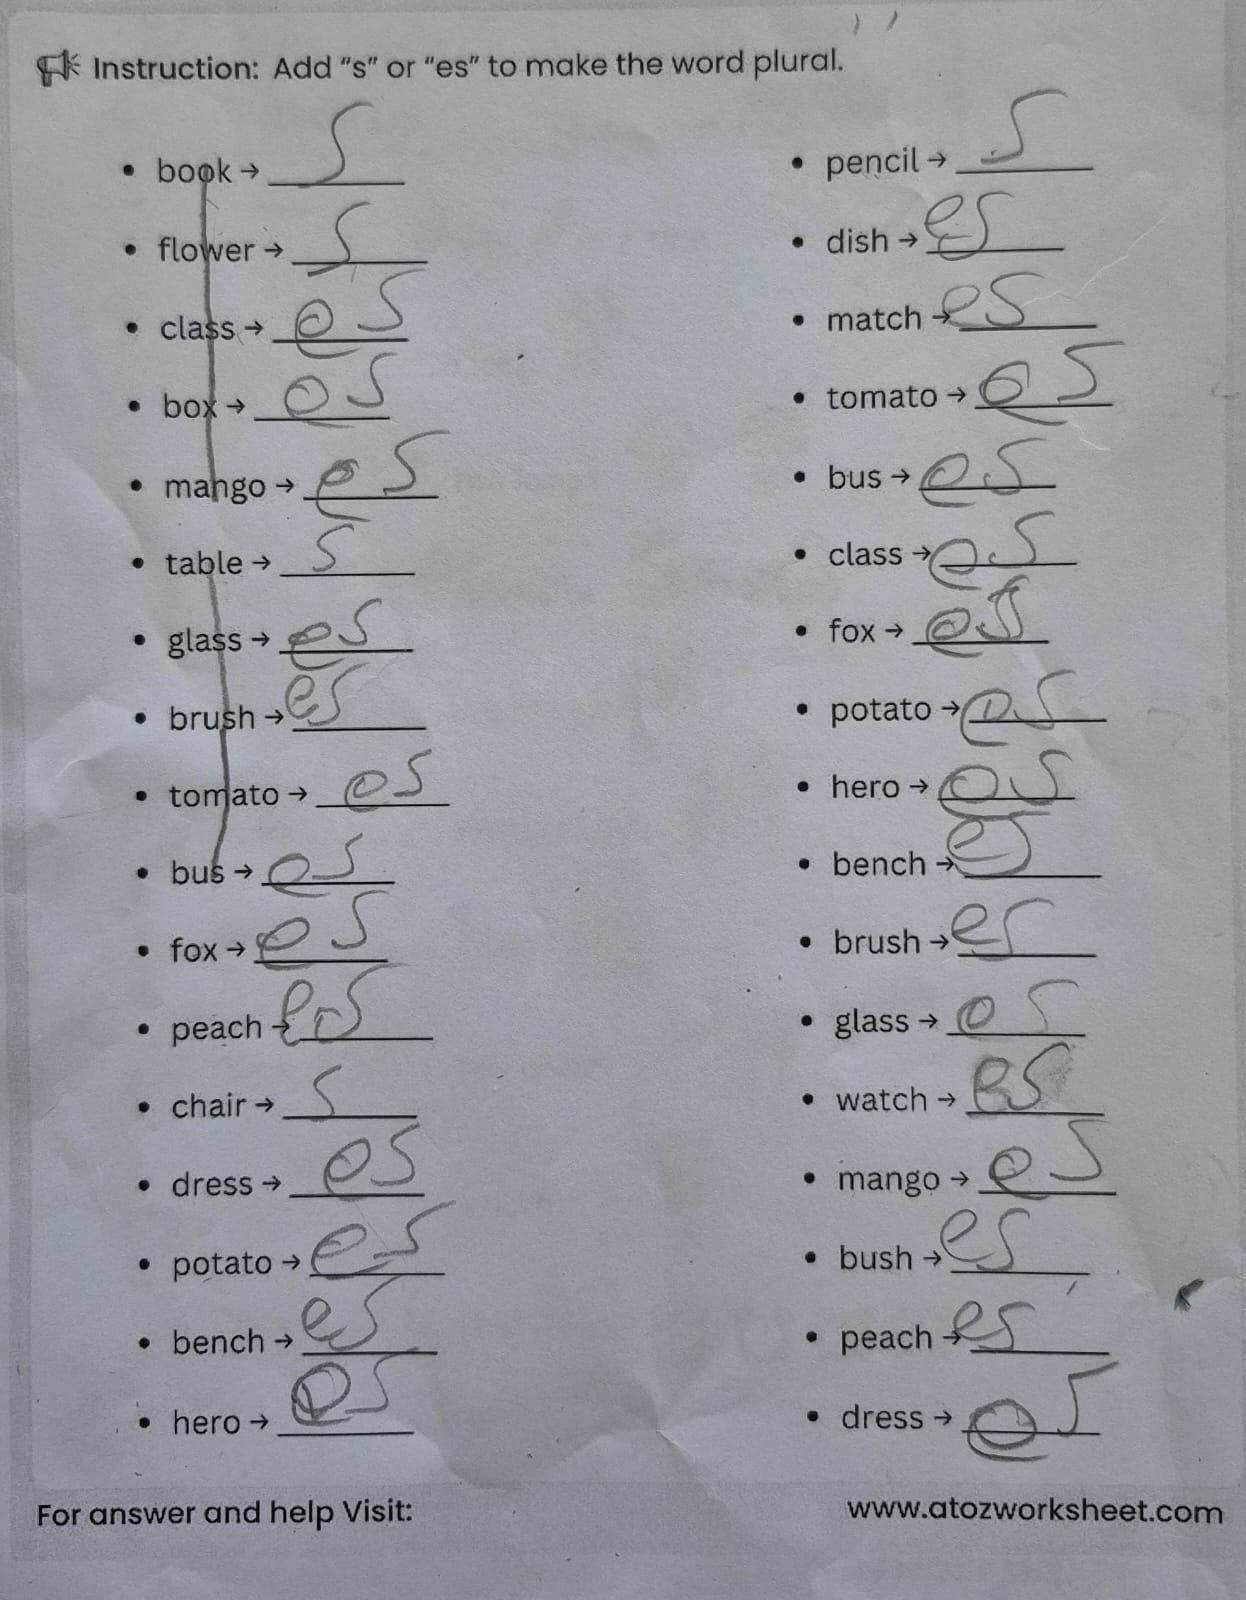 Instruction: Add "s" or "es" to make the word plural.
• book → s
• flower → s
• class → es
• box → es
• mango → es
• table → s
• glass → es
• brush → es
• tomato → es
• bus → es
• fox → es
• peach → es
• chair → s
• dress → es
• potato → es
• bench → es
• hero → es
• pencil → s
• dish → es
• match → es
• tomato → es
• bus → es
• class → es
• fox → es
• potato → es
• hero → es
• bench → es
• brush → es
• glass → es
• watch → es
• mango → es
• bush → es
• peach → es
• dress → es
For answer and help Visit:
www.atozworksheet.com